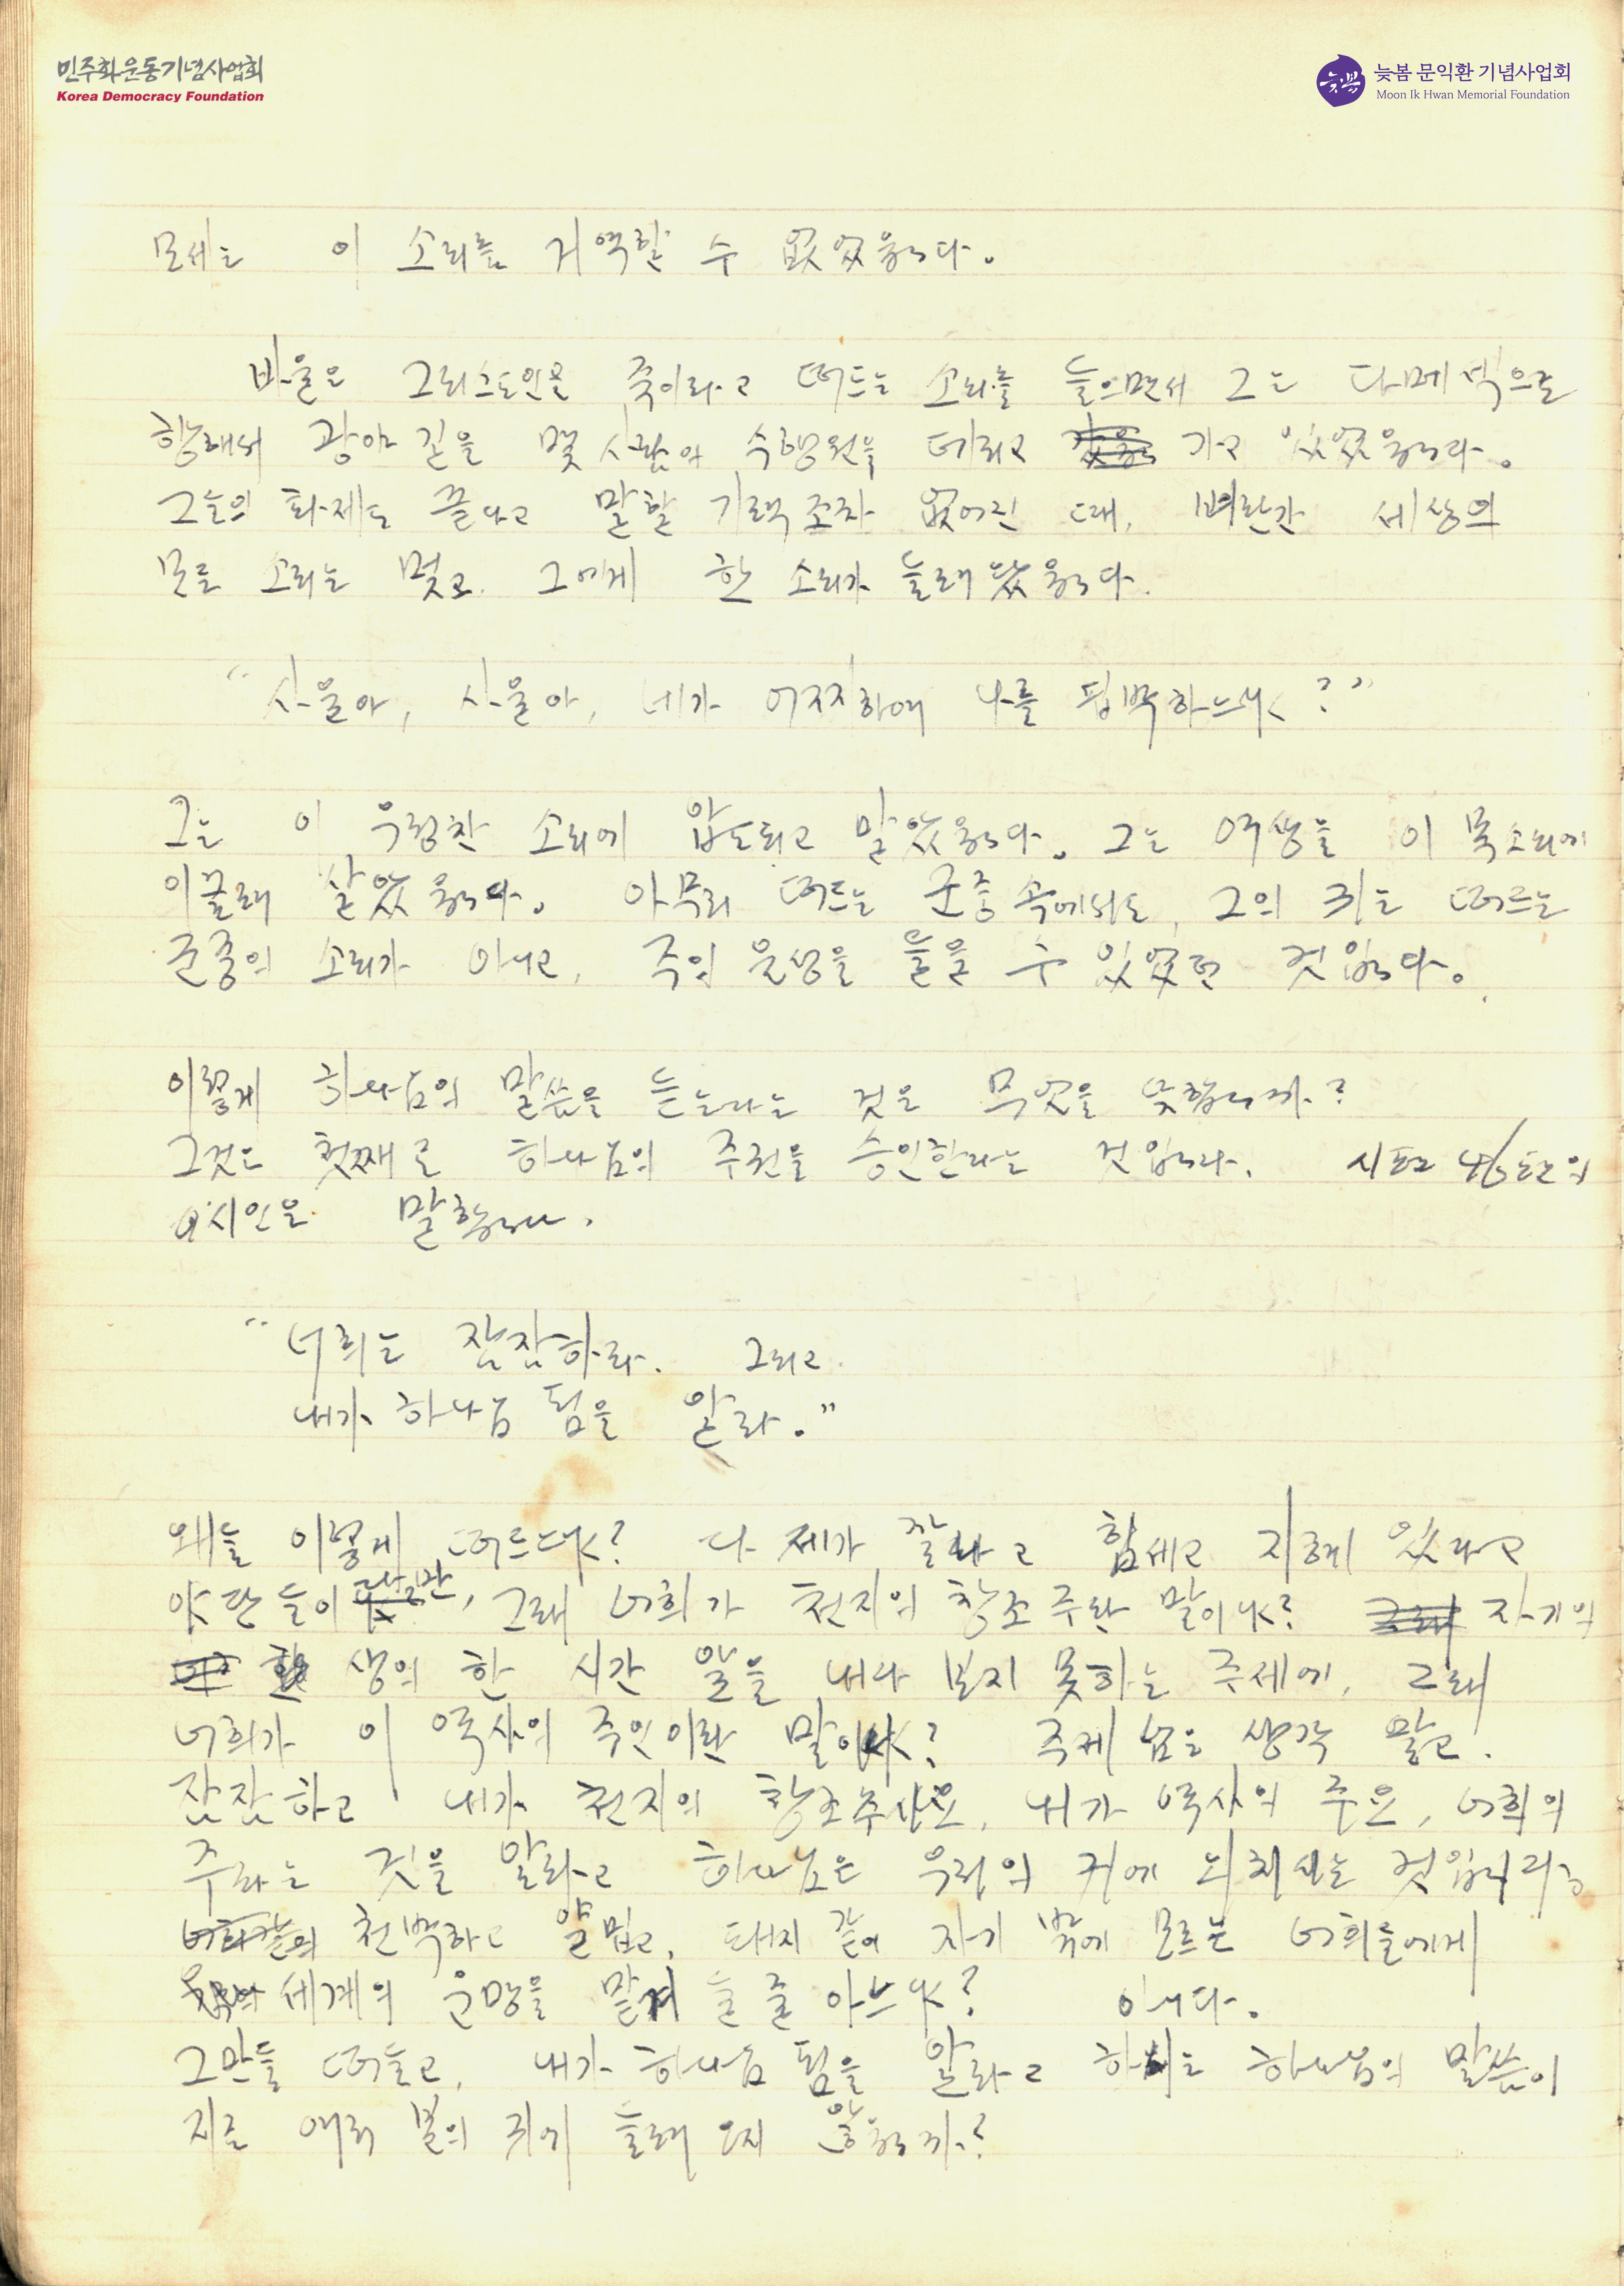 민주화운동기념사업회
Korea Democracy Foundation
늦봄 문익환 기념사업회
Moon Ik Hwan Memorial Foundation
모세는 이 소리를 거역할 수 없었읍니다.
바울은 그리스도인을 죽이라고 떠드는 소리를 들으면서 그는 다메섹으로
향해서 광야 길을 몇 사람의 수행원을 데리고 가고 있었읍니다.
그들의 화제도 끝나고 말할 기력조차 없어진 때, 벼란간 세상의
모든 소리는 멎고. 그에게 한 소리가 들려 왔읍니다.
"사울아, 사울아, 네가 어찌하여 나를 핍박하느냐?"
그는 이 우렁찬 소리에 압도되고 말았읍니다. 그는 여생을 이 목소리에
이끌려 살았읍니다. 아무리 떠드는 군중 속에서도, 그의 귀는 떠드는
군중의 소리가 아니고, 주의 음성을 들을 수 있었던 것입니다.
이렇게 하나님의 말씀을 듣는다는 것은 무엇을 뜻합니까?
그것은 첫째로 하나님의 주권을 승인한다는 것입니다. 시편 46편의
시인은 말합니다.
"너희는 잠잠하라. 그리고
내가 하나님 됨을 알라."
왜들 이렇게 떠드느냐? 다 제가 잘나고 힘세고 지혜 있다고
야단들이지만, 그래 너희가 천지의 창조주란 말이냐? 자기의
생의 한 시간 앞을 내다 보지 못하는 주제에, 그래
너희가 이 역사의 주인이란 말이냐? 주제 넘은 생각 말고.
잠잠하고 내가 천지의 창조주시요, 내가 역사의 주요, 너희의
주라는 것을 알라고 하나님은 우리의 귀에 외치시는 것입니다.
천박하고 얄밉고, 돼지 같이 자기 밖에 모르는 너희들에게
세계의 운명을 맡겨 둘 줄 아느냐? 아니다.
그만들 떠들고, 내가 하나님 됨을 알라고 하시는 하나님의 말씀이
지금 여러분의 귀에 들려 오지 않읍니까?